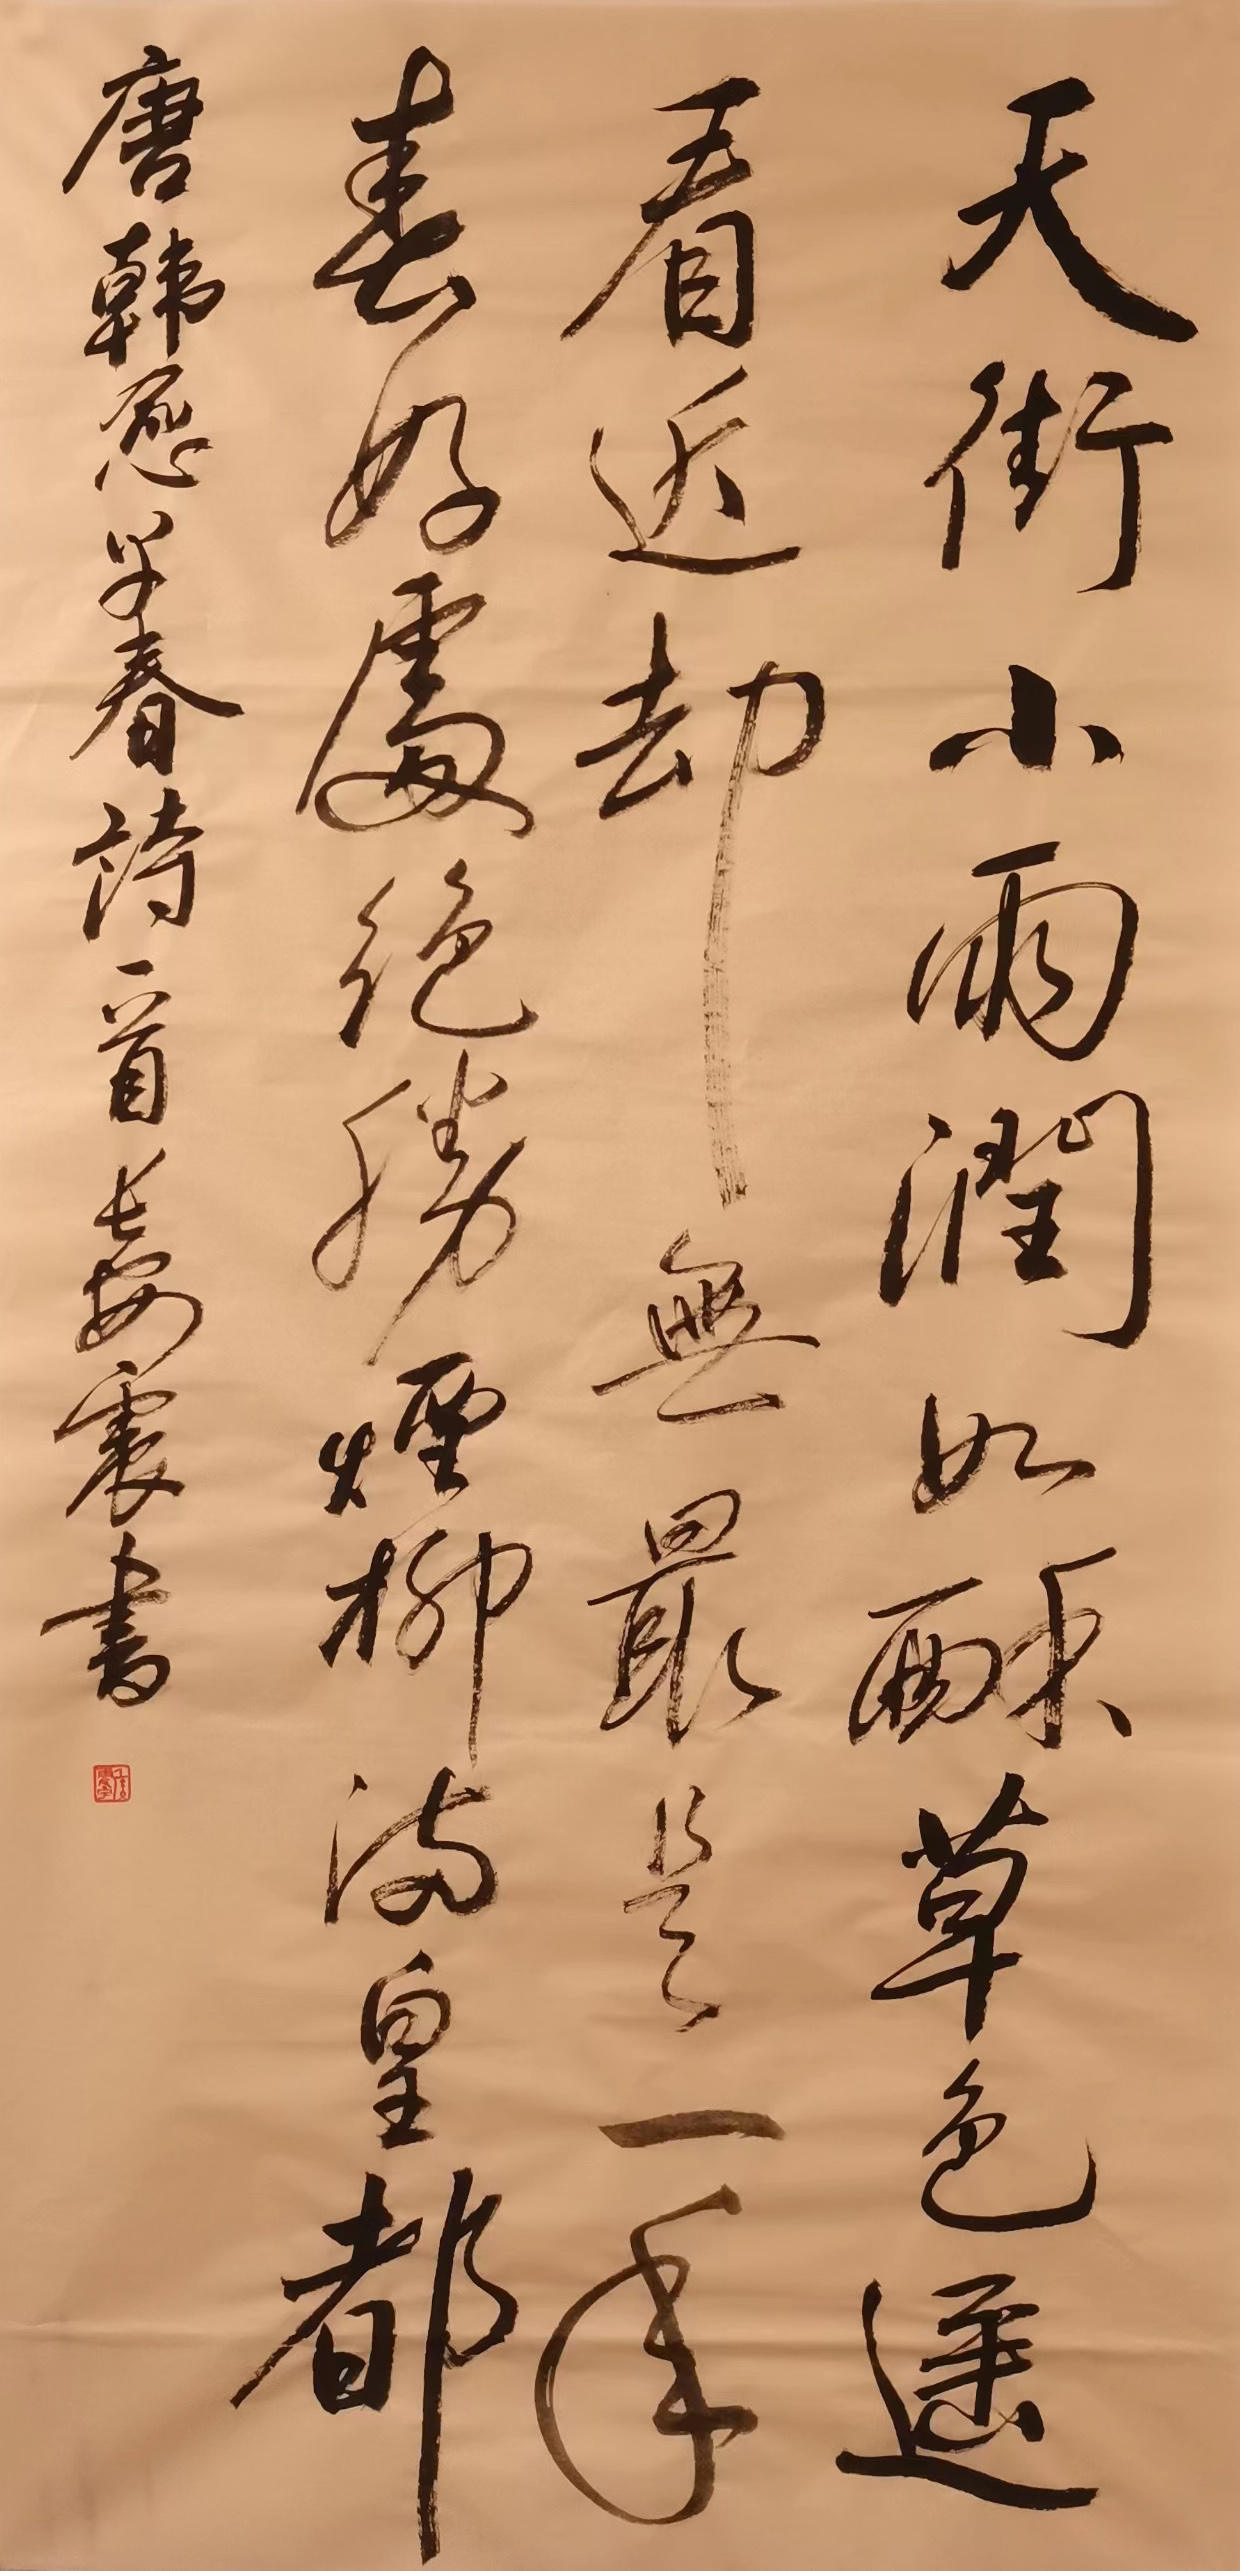 天街小雨潤如酥草色遥
看近却無最是一年
春好處絕勝煙柳滿皇都
唐韩愈早春詩一首長安震書